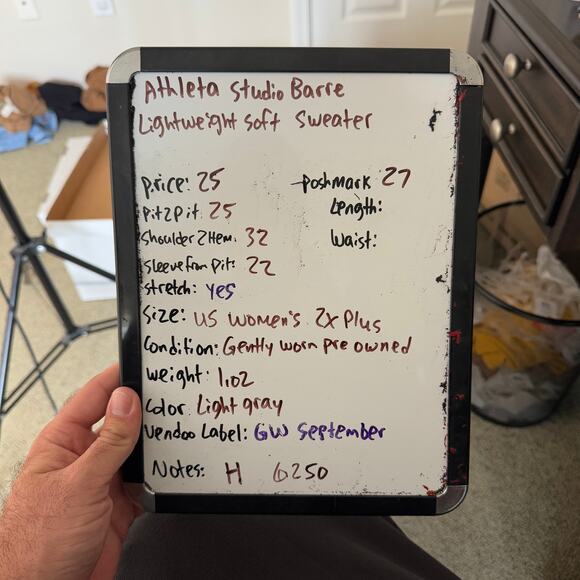 Athleta Studio Barre
Lightweight soft sweater
price: 25
Poshmark 27
Pit2Pit: 25
Length:
Shoulder2Hem: 32
Waist:
Sleeve from Pit: 22
Stretch: yes
Size: US women's 2x Plus
Condition: Gently worn pre owned
weight: 1.02
Color: Light gray
Vendoo Label: GW September
Notes: H 6250